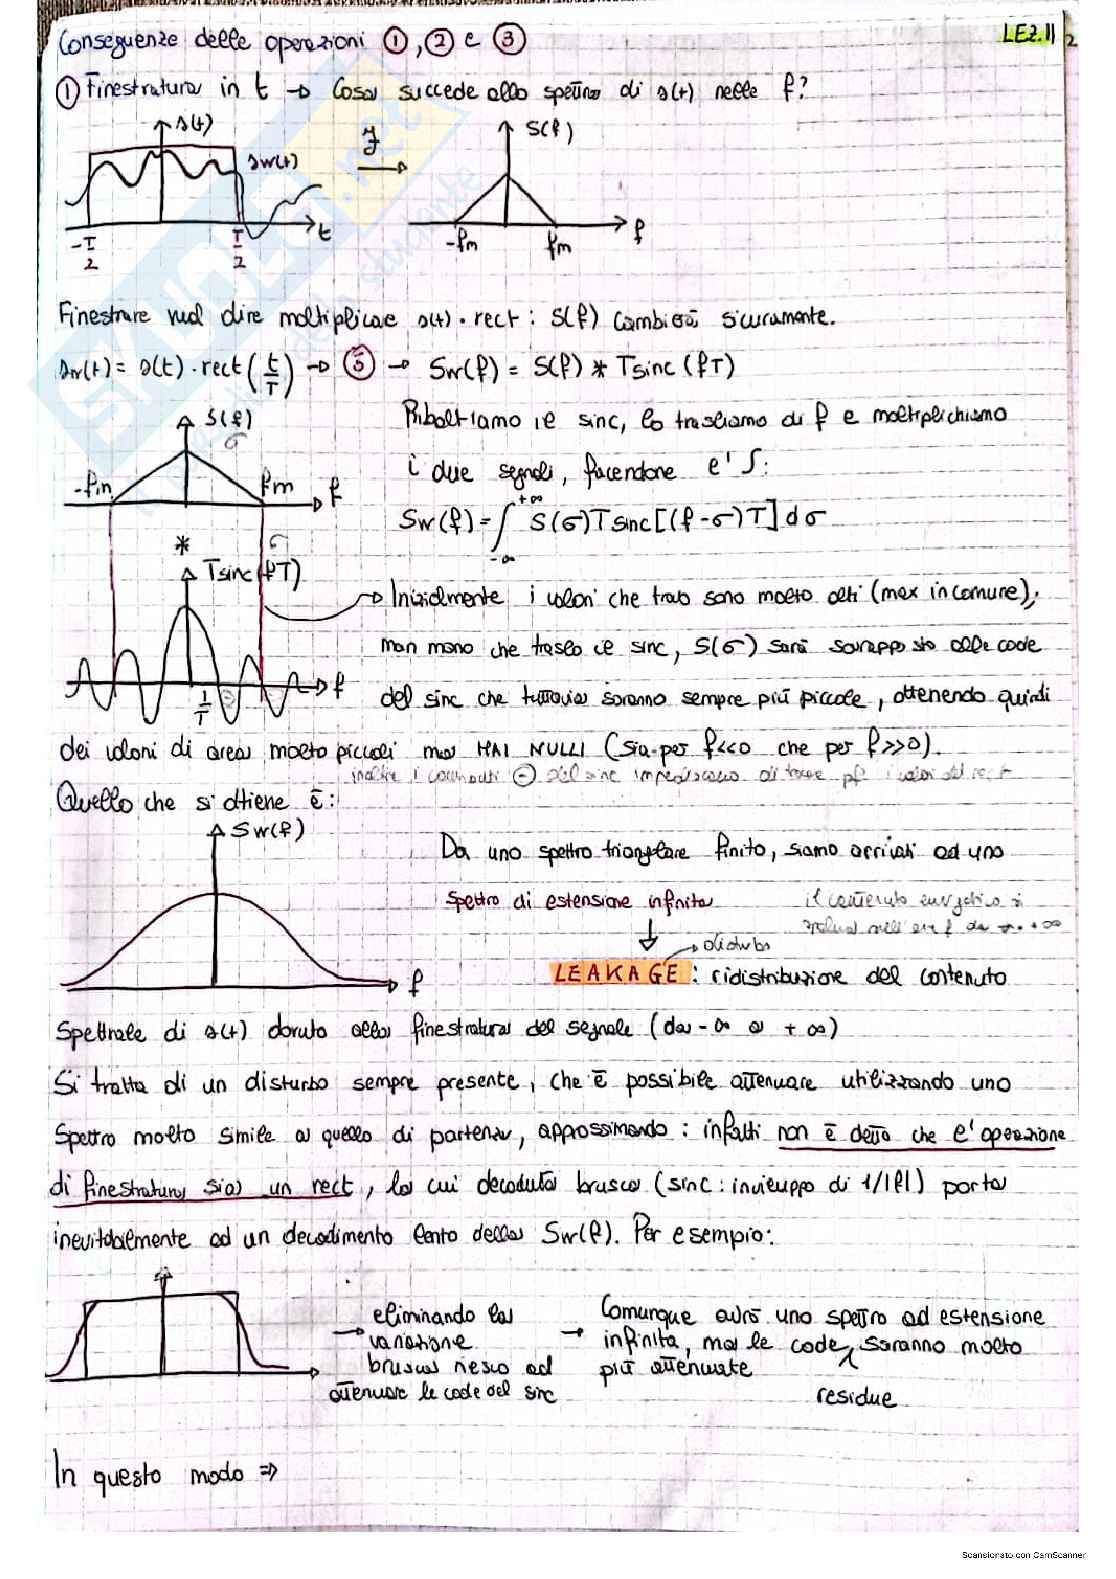 Conseguenze delle operazioni ①, ② e ③
LEZ. 11
2
① Finestratura in t → Cosa succede allo spettro di s(t) nelle f?
s(t)
sw(t)
-T/2
T/2
t
F
S(f)
-fm
fm
f
Finestrare vuol dire moltiplicare s(t) · rect : S(f) cambierà sicuramente.
sw(t) = s(t) · rect(t/T) → ⑤ → Sw(f) = S(f) * T sinc (fT)
S(f)
σ
-fm
fm
f
σ
*
T sinc (fT)
1/T
f
Ribaltiamo il sinc, lo trasliamo di f e moltiplichiamo
i due segnali, facendone l'∫:
Sw(f) = ∫ S(σ) T sinc[(f-σ)T] dσ
+∞
-∞
→ Inizialmente i valori che trovo sono molto alti (max in comune),
man mano che traslo il sinc, S(σ) sarà sovrapposto alle code
del sinc che tuttavia saranno sempre più piccole, ottenendo quindi
dei valori di area molto piccoli ma MAI NULLI (sia per f<<0 che per f>>0).
inoltre i contributi ⊖ del sinc impediscono di i valori del rect
Quello che si ottiene è:
Sw(f)
f
Da uno spettro triangolare finito, siamo arrivati ad uno
spettro di estensione infinita
il contenuto energetico si
da -∞ a +∞
↓
→ disturbo
LEAKAGE : ridistribuzione del contenuto
Spettrale di s(t) dovuto alla finestratura del segnale (da -∞ a +∞)
Si tratta di un disturbo sempre presente, che è possibile attenuare utilizzando uno
spettro molto simile a quello di partenza, approssimando: infatti non è detto che l'operazione
di finestratura sia un rect, la cui decaduta brusca (sinc: inviluppo di 1/|f|) porta
inevitabilmente ad un decadimento lento della Sw(f). Per esempio:
→ eliminando la
variazione
brusca riesco ad
attenuare le code del sinc
→ Comunque avrò uno spettro ad estensione
infinita, ma le code saranno molto
più attenuate
residue
In questo modo ⇒
Scansionato con CamScanner